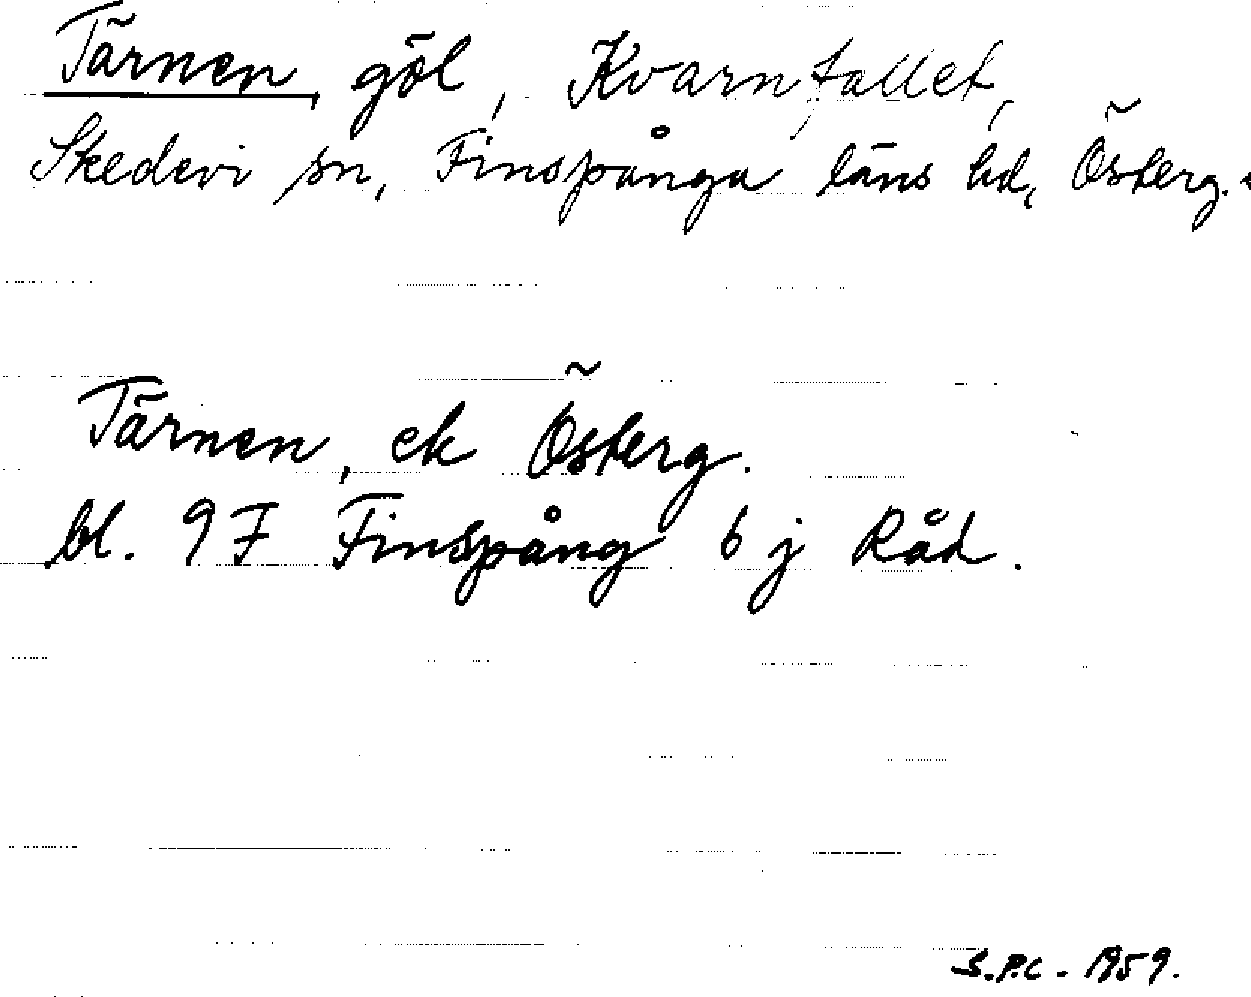 Tärnen, göl, Kvarnfallet,
Skedevi sn, Finspånga läns hd, Österg.
Tärnen, ek Österg.
bl. 9F Finspång 6 j Råd.
S.P.C. 1959.